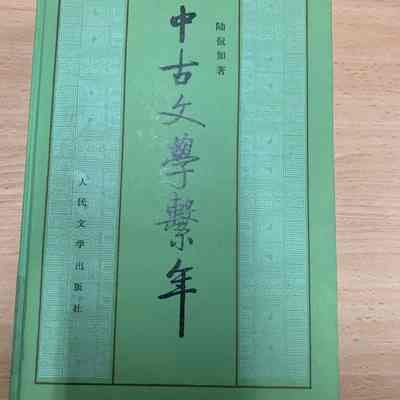 陆侃如著
中古文學繫年
人民文学出版社